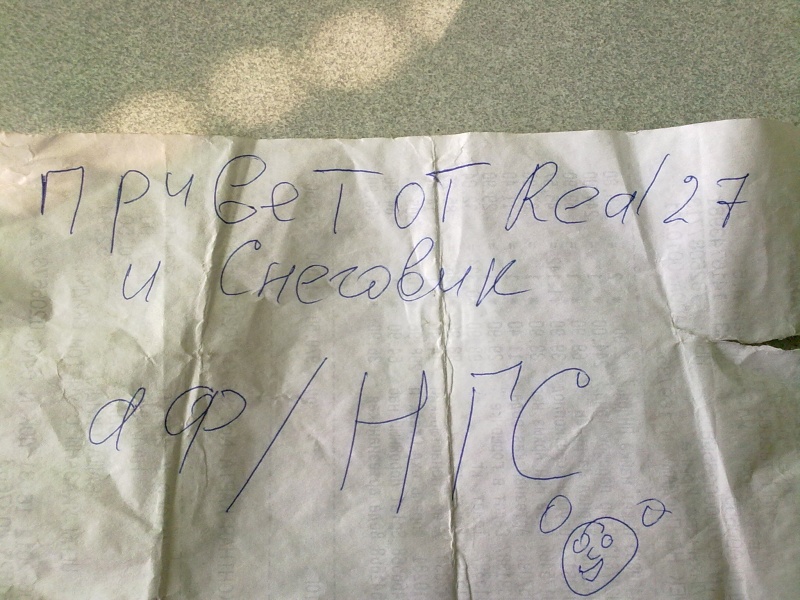 Привет от Real 27
и Снеговик
аФ/НГС